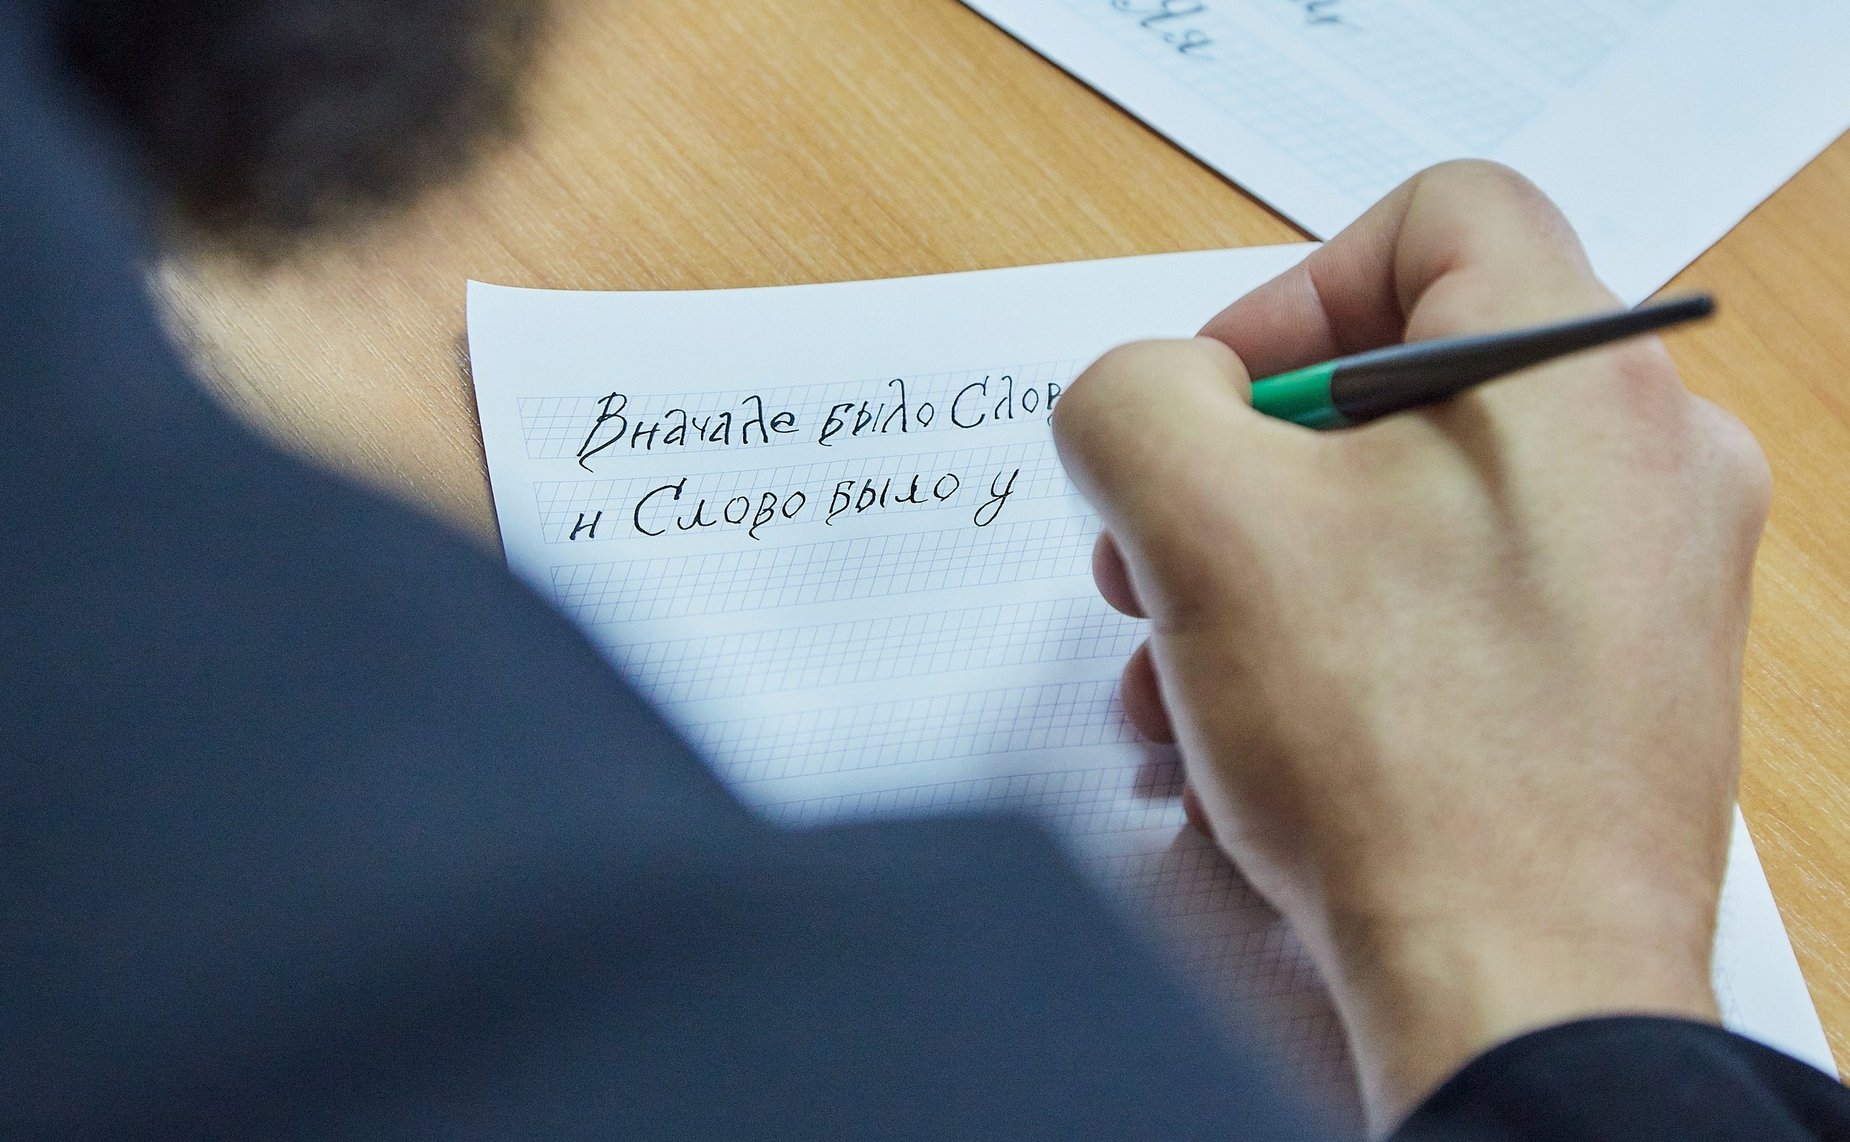 Яя
Вначале было Слов
и Слово было у